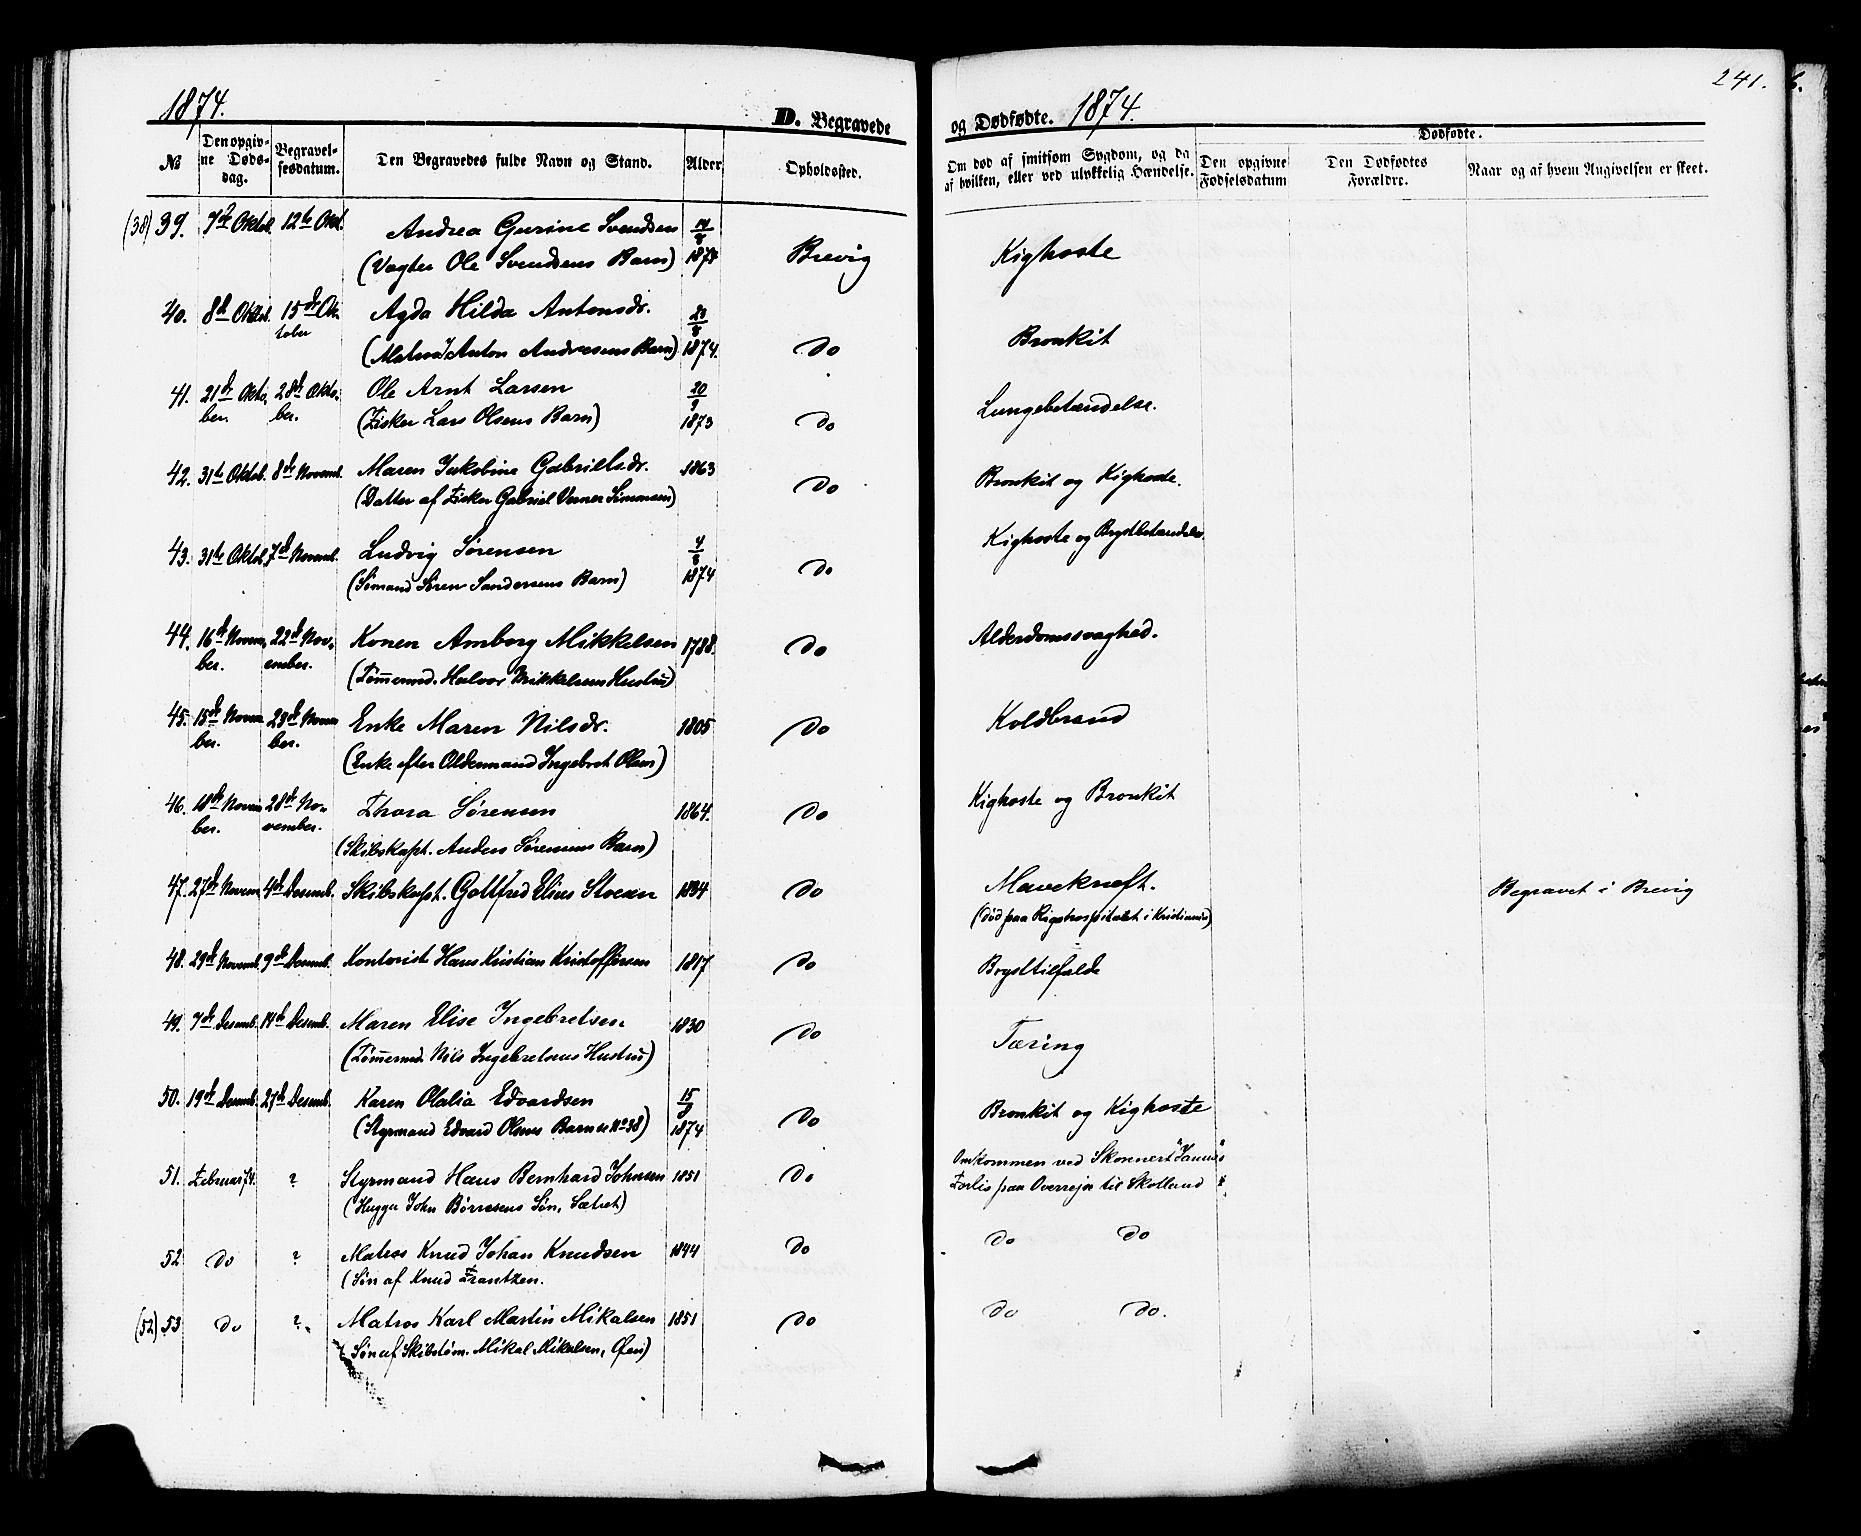 1874.
D. Begravede
og Dødfødte. 1874.
241.
Dødfødte.
№
Den opgivne Dødsdag.
Begravelsesdatum.
Den Begravedes fulde Navn og Stand.
Alder
Opholdssted.
Om død af smitsom Sygdom, og da af hvilken, eller ved ulykkelig Hændelse.
Den opgivne Fødselsdatum
Den Dødfødtes Forældre.
Naar og af hvem Angivelsen er skeet.
(38) 39. 7de Oktob. 12te Okt. Andrea Gurine Svendsen 14/8 1874 Brevig Kighoste
(Vagter Ole Svendsens Barn)
40. 8de Oktob. 15de Oktober Agda Hilda Antonsdr. 23/8 1874. Do Bronkit
(Matros Anton Andresens Barn)
41. 21de Oktober. 28de Oktober. Ole Arnt Larsen 20/9 1873 Do Lungebetændelse.
(Fisker Lars Olsens Barn)
42. 31te Oktob. 8de Novemb. Maren Jakobine Gabrielsdr. 1863 Do Bronkit og Kighoste.
(Datter af Fisker Gabriel Verner Simonsen)
43. 31te Oktob. 7de Novemb. Ludvig Sørensen 4/8 1874 Do Kighoste og Brystbetændelse
(Sømand Søren Sandersens Barn)
44. 16de November. 22de November. Konen Amborg Mikkelsen 1788. Do Alderdomssvaghed.
(Tømmermd. Halvor Mikkelsens Hustru)
45. 15de November. 23de November. Enke Maren Nilsdr. 1805 Do Koldbrand
(Enke efter Oldermand Ingebret Olsen)
46. 18de November. 28de November. Thora Sørensen 1864. Do Kighoste og Bronkit
(Skibskapt. Anders Sørensens Barn)
47. 27de Novem 4de Desemb. Skibskapt. Gottfred Elias Stocan 1834 Do Mavekræft. Begravet i Brevig
(død paa Rigshospitalet i Kristiania)
48. 29de Novemb. 9de Desemb. Kontorist Hans Kristian Kristoffersen 1817 Do Brysttilfælde
49. 7de Desemb. 14de Desemb. Maren Elise Ingebretsen 1830 Do Tæring
(Tømmermd. Nils Ingebretsens Hustru)
50. 19de Desemb. 27de Desemb. Karen Olalia Edvardsen 15/9 1874 Do Bronkit og Kighoste
(Styrmand Edvard Olsens Barn se No 38)
51. Februar 74. ? Styrmand Hans Bernhard Johnsen 1851 Do Omkommen ved Skonnert "Janus"
(Hugger John Børresens Søn, Sætret) Forlis paa Overreise til Skotland
52 Do ? Matros Knud Johan Knudsen 1844 Do Do Do
(Søn af Knud Frantzen.
(52) 53 Do ? Matros Karl Martin Mikalsen 1851 Do Do Do.
(Søn af Skibstøm. Mikal Mikalsen, Øen)